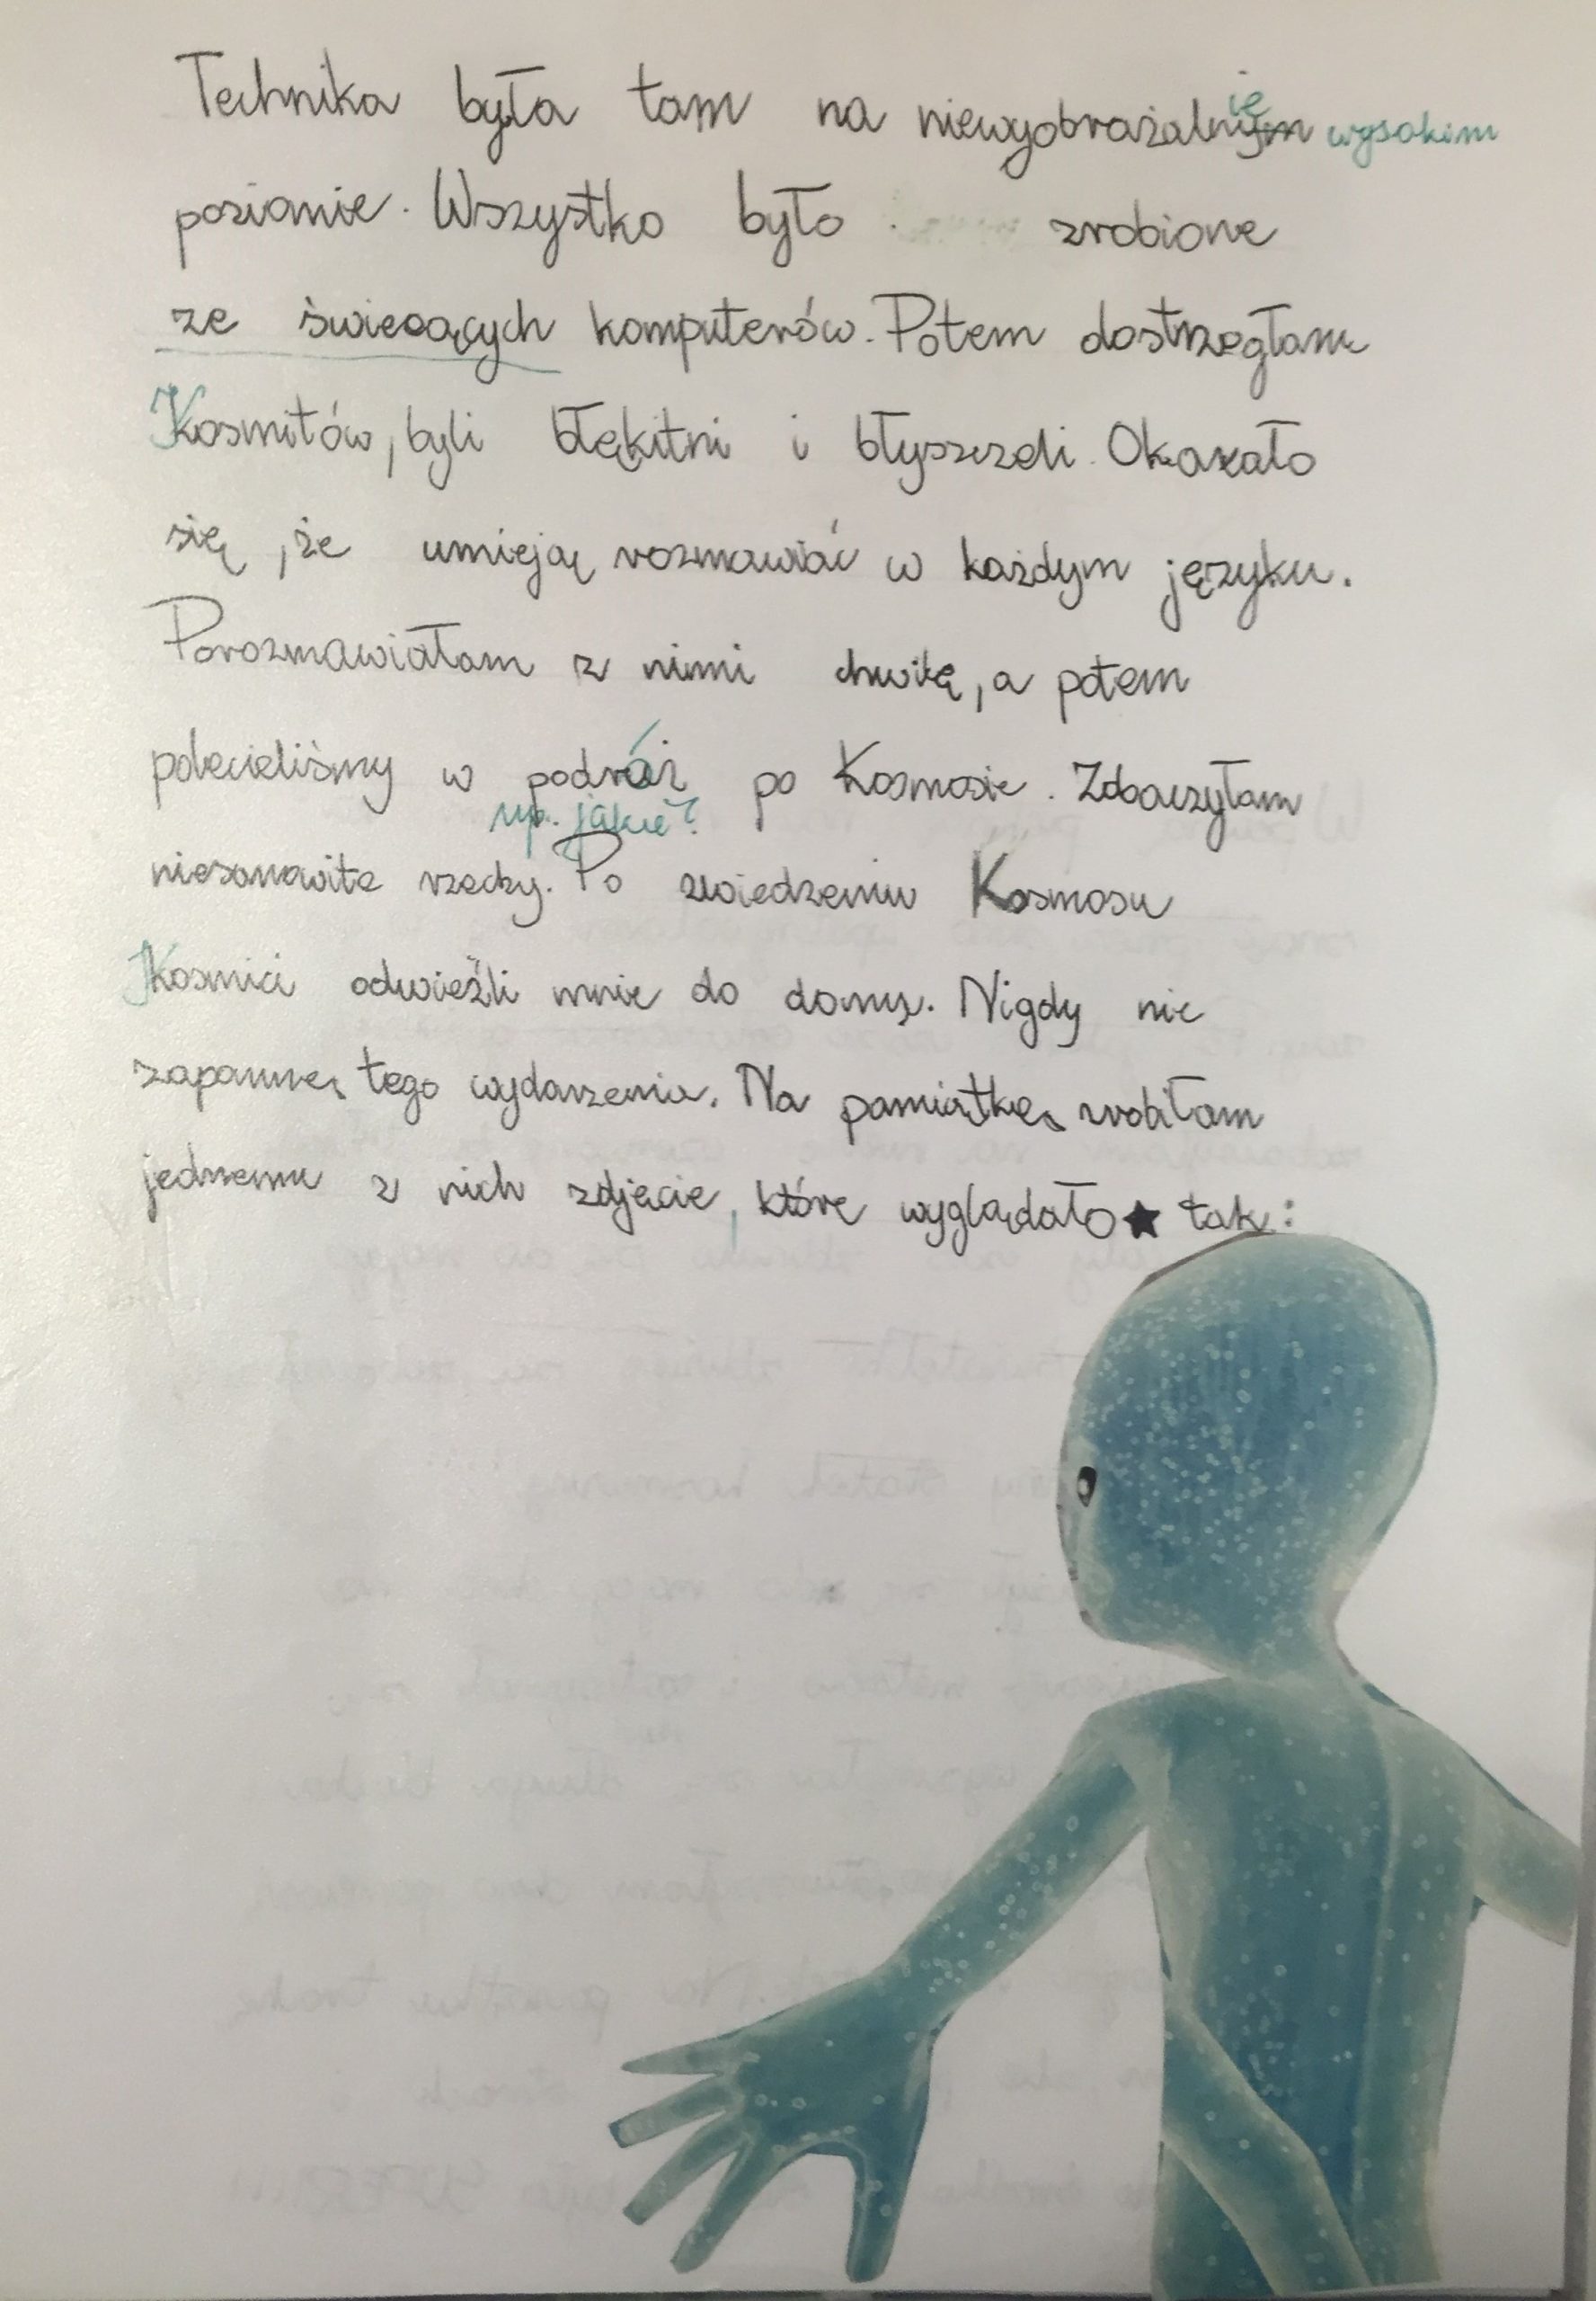 Technika była tam na niewyobrażalnym ie wysokim
poziomie. Wszystko było zrobione
ze świecących komputerów. Potem dostrzegłam
Kosmitów, byli błękitni i błyszczeli. Okazało
się, że umieją rozmawiać w każdym języku.
Porozmawiałam z nimi chwilę, a potem
polecieliśmy w podróż po Kosmosie. Zobaczyłam
np. jakie?
niesamowite rzeczy. Po zwiedzeniu Kosmosu
Kosmici odwieźli mnie do domu. Nigdy nie
zapomnę tego wydarzenia. Na pamiątkę zrobiłam
jednemu z nich zdjęcie, które wyglądało ★ tak: